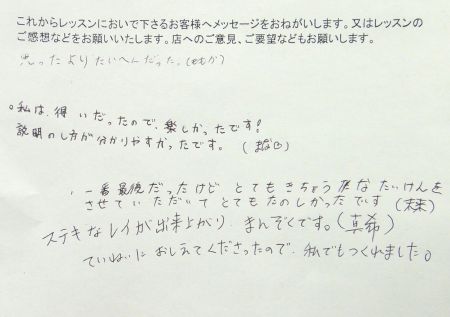 これからレッスンにおいで下さるお客様へメッセージをおねがいします。又はレッスンの
ご感想などをお願いいたします。店へのご意見、ご要望などもお願いします。
思ったよりたいへんだった。(ももか)
。私は、得いだったので、楽しかったです!
説明のし方が分かりやすかったです。(まな☺)
・一番最後だったけど とてもきちょう な たいけんを
させていただいて とてもたのしかったです (未来)
ステキなレイが出来上がり、まんぞくです。(真希)
ていねいに おしえてくださったので、私でもつくれました。